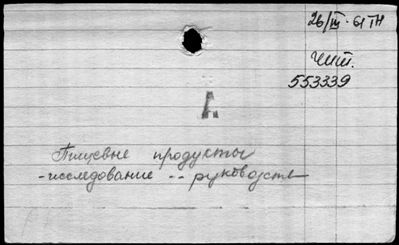 26/III-61 ТН
Чит.
553339
А.
Пищевые продукты
-исследование -- руководств